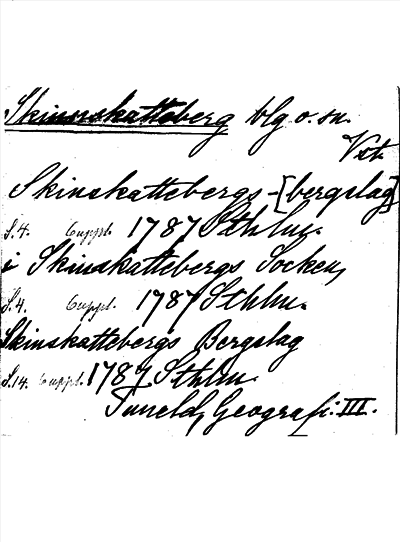 Skinnskatteberg blg o. sn.
Vstr.
Skinskattebergs-[bergslag]
S.4. Cuppl. 1787 Sthlm.
i Skinskattebergs Socken,
S.4. Cuppl. 1787 Sthlm.
Skinskattebergs Bergslag
S.14. Cuppl. 1787 Sthlm.
Tuneld, Geografi. III.